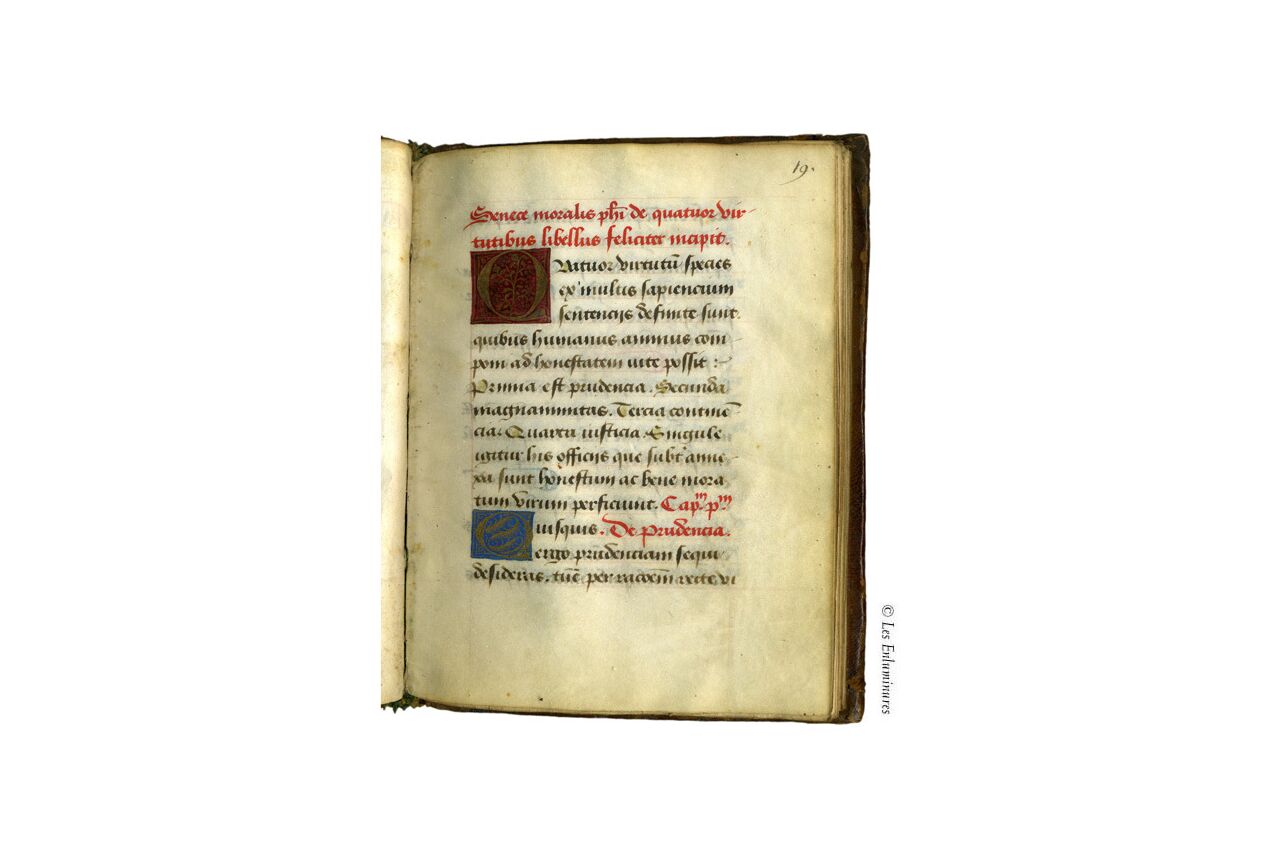 19.
Senece moralis phi de quatuor vir-
tutibus libellus feliciter incipit.
Quatuor virtutū species
ex multis sapiencium
sentencijs definite sunt.
quibus humanus animus com̄
poni ad honestatem vite possit :
Prima est prudencia. Secunda
magnanimitas. Tercia contine͞
cia. Quarta iusticia. Singule
igitur his officijs que subt' anne-
xa sunt honestum ac bene mora
tum virum perficiunt. Cap.m p.m
Quisquis. De Prudencia.
ergo prudenciam sequi
desideras. tūc per racōem recte vi
© Les Enluminures